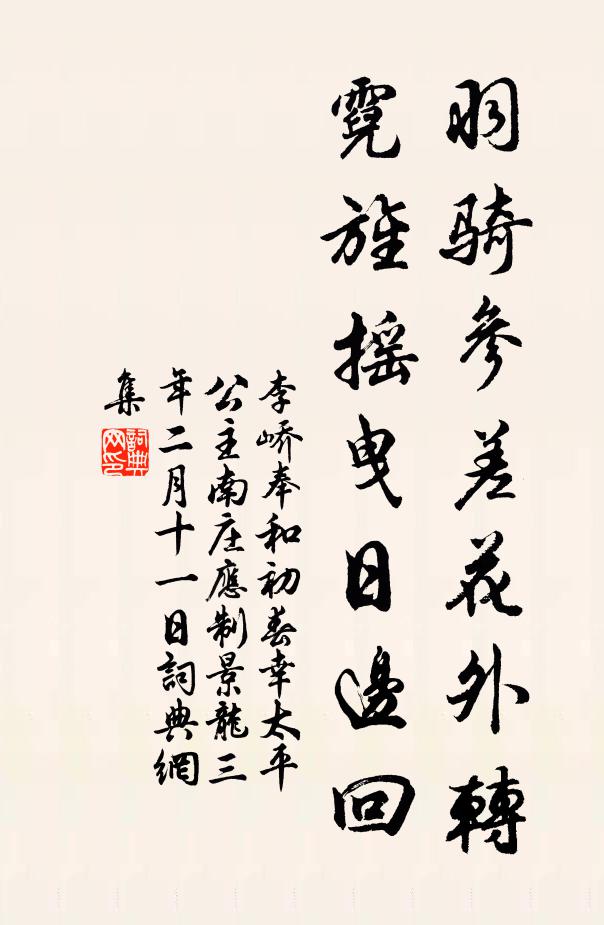 羽騎參差花外轉
霓旌搖曳日邊回
李嶠奉和初春幸太平
公主南庄應制景龍三
年二月十一日詞典網
集
詞典
网印